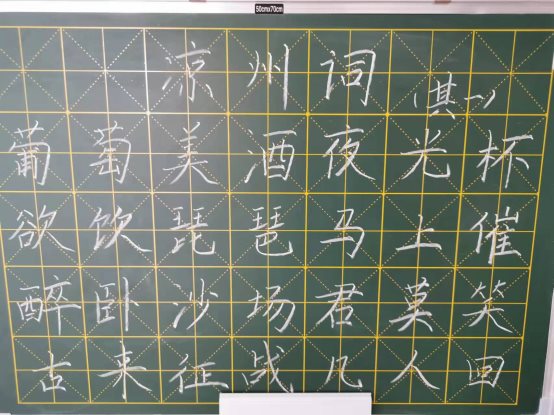 50cmx70cm
凉州词(其一)
葡萄美酒夜光杯
欲饮琵琶马上催
醉卧沙场君莫笑
古来征战几人回